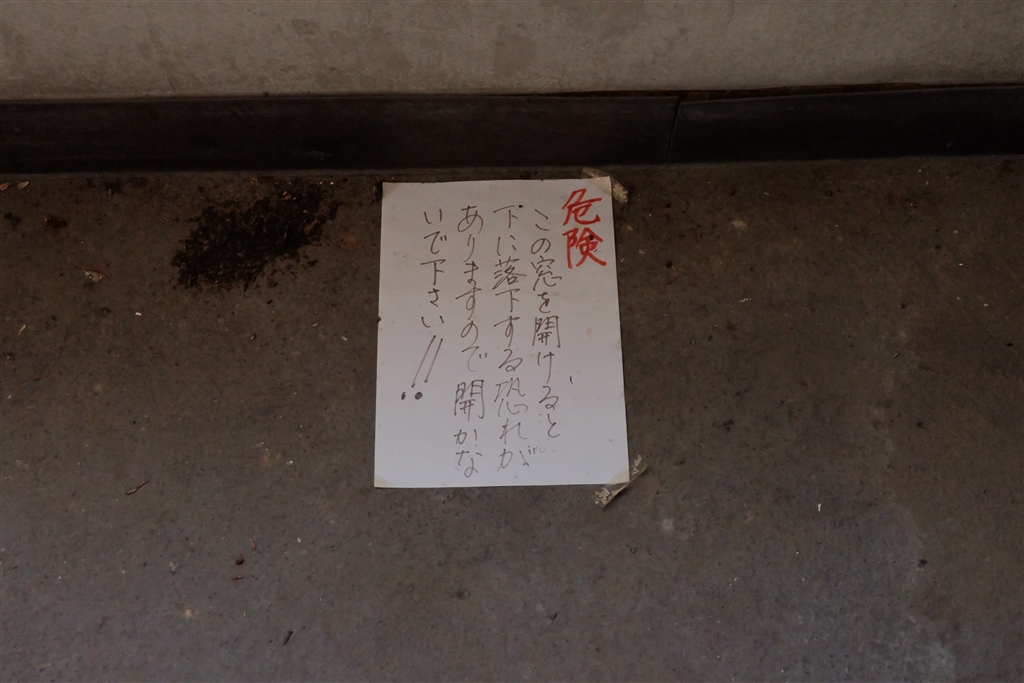 危険
この窓を開けると
下に落下する恐れが
ありますので開かな
いで下さい!!